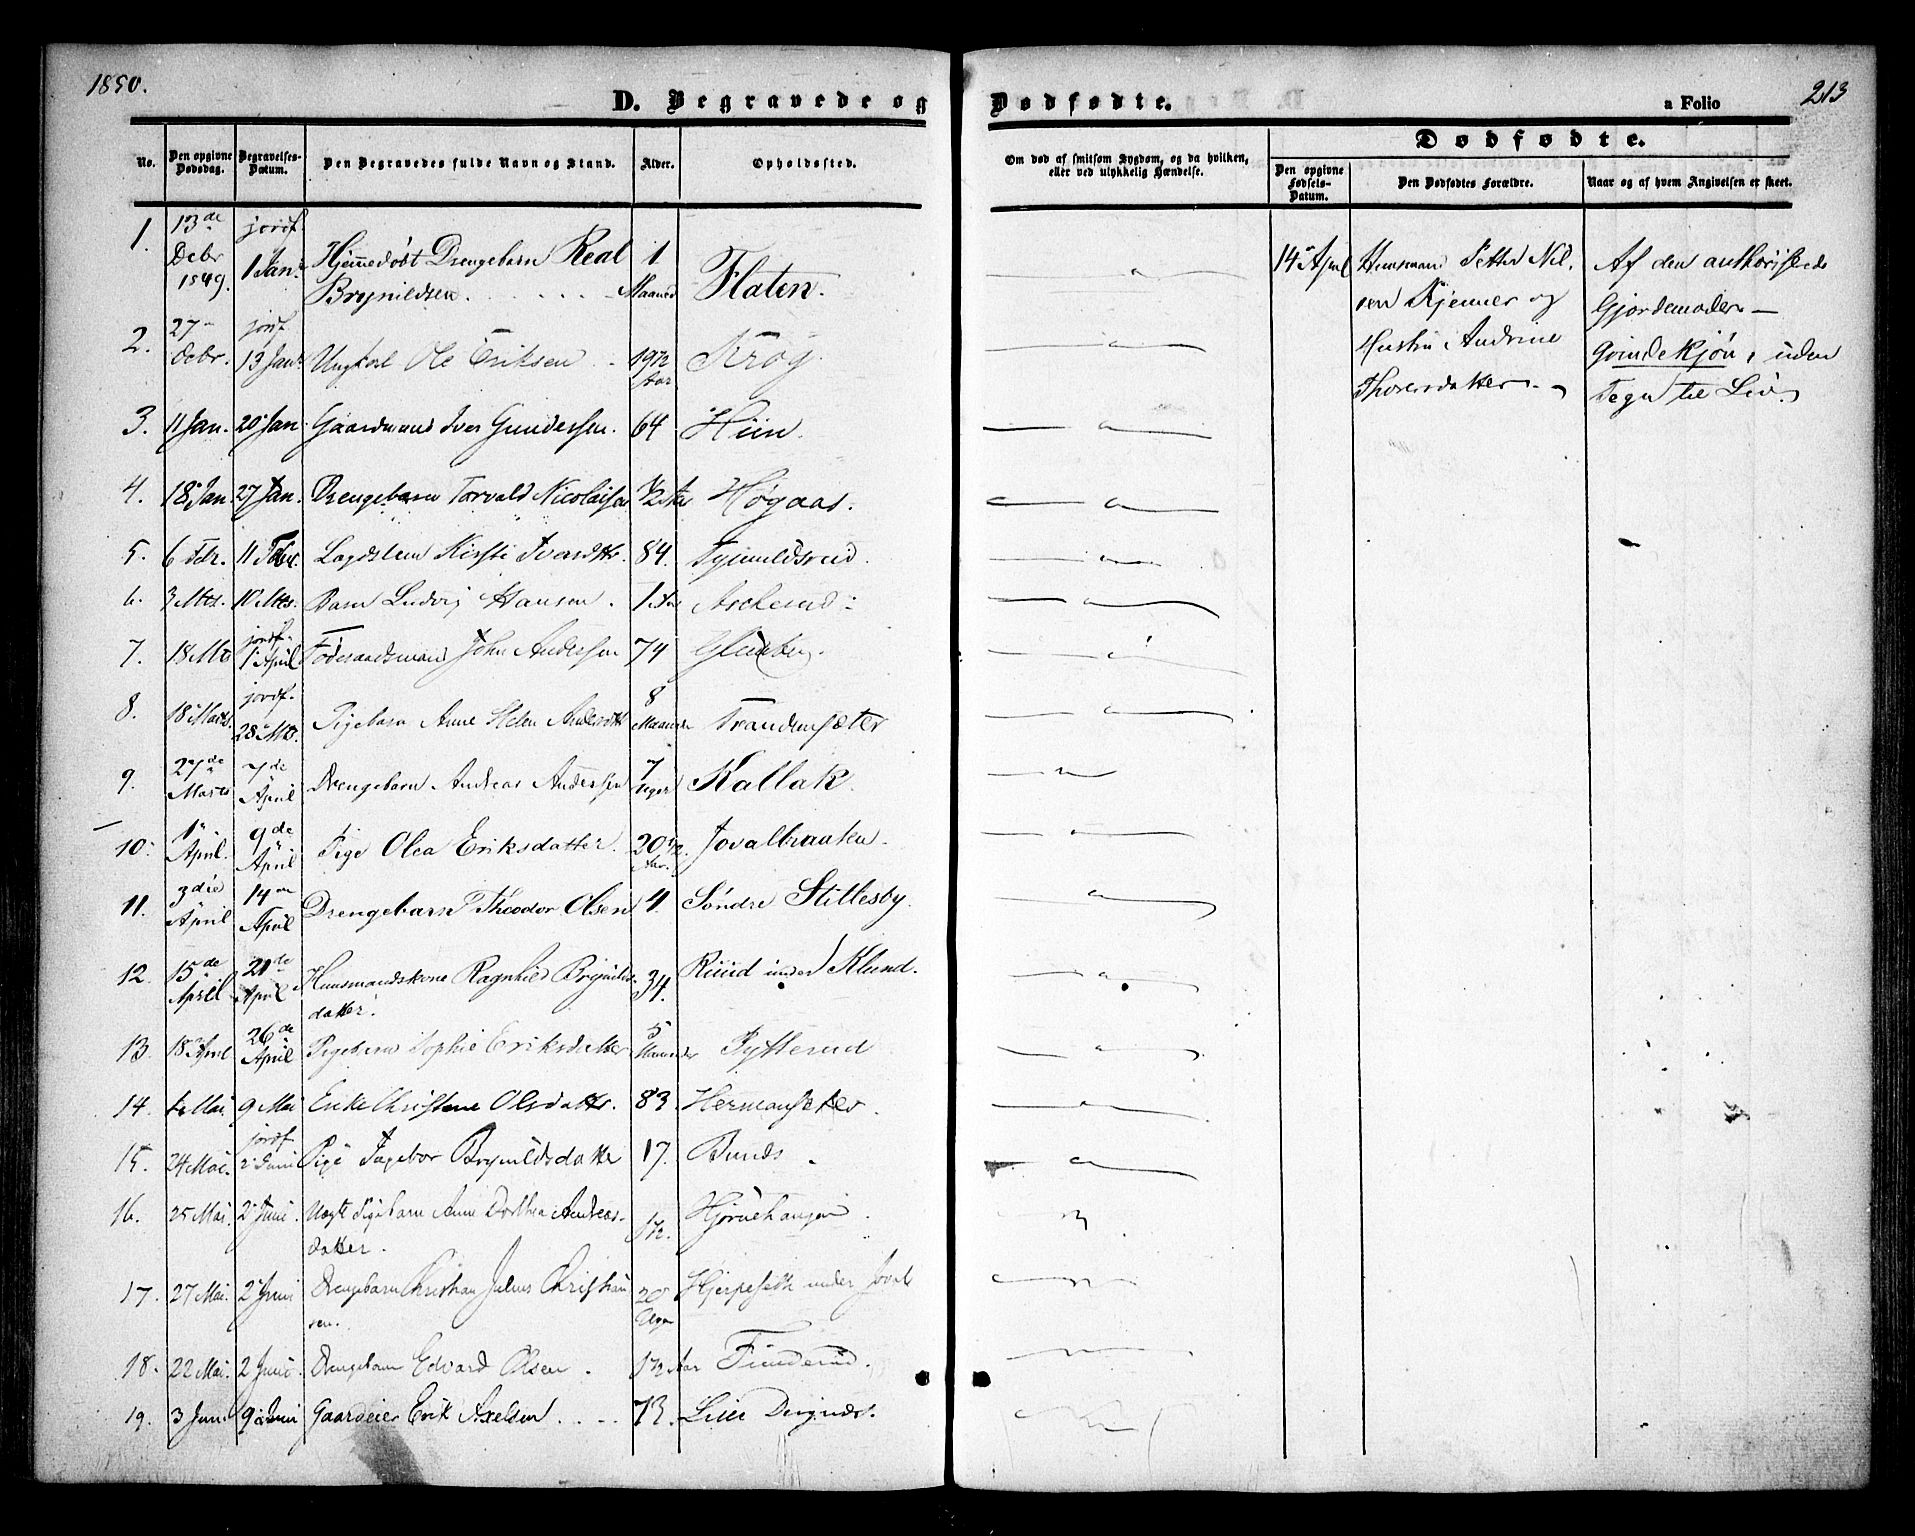 1850.
D. Begravede og Dødfødte.
a Folio 213
No. Den opgivne Dødsdag. Begravelses-Datum. Den Begravedes fulde Navn og Stand. Alder. Opholdssted.
Om død af smitsom Sygdom, og da hvilken, eller ved ulykkelig Hændelse.
Dødfødte.
Den opgivne Fødsels-Datum. Den Dødfødtes Forældre. Naar og af hvem Angivelsen er skeet.
1. 13de Debr 1849. jordf. 1 Jan. Hjemmedøbt Drengebarn Real 1
Brynildsen. Maaned Flaten.
2. 27 Debr. jordf 13 Jan. Ungkarl Ole Eriksen 19 1/2 Aar Krog.
3. 11 Jan. 20 Jan. Gaardmand Iver Gundersen. 64 Hiin.
4. 18 Jan. 27 Jan. Drengebarn Torvald Nicolaisen 1/2 Aar Høgaas.
5. 6 Febr. 11 Febr. Lægdslem Kirsti Iversdttr. 84.
6. 3 Mts. 10 Mts. Barn Ludvig Hansen. 1 Aar Ascherud
7. 18 Mts jordf. 1 April Føderaadsmand John Anderssen 74
8. 18 Marts. jordf. 28 Mts. Pigebarn Anne Helene Andersdttr 8 Maaneder Trandemsæter
9. 27de Marts 7de April Drengebarn Andreas Anderssen 7 Kallak.
10. 1 April. 9de April Pige Olea Eriksdatter. 20 1/2 Aar. Jovalbraaten.
11. 3die April 14 April Drengebarn Theodor Olsen 4. Søndre Stillesby.
12. 15de April 21de April Huusmandskone Ragnhild Brynilds-
datter. 34. Ruud under Klund.
13. 18 April 26de April Pigebarn Sophie Eriksdatter 5 Maaneder Pytterud
14. Mai. 9 Mai Enke Christine Olsdatter. 83. Hermansæter.
15. 24 Mai. jordf 2 Juni Pige Ingebor Brynildsdatter 17. Bunds
16. 25 Mai. 2 Juni. Uægte Pigebarn Anne Dorthea Andreas-
datter. 1 1/2.
17. 27 Mai. 2 Juni Drengebarn Christian Julius Christian
sen. 20 Uger Hjerpeseth under Joval
18. 22 Mai. 2 Juni. Drengebarn Edvard Olsen. 1 1/2 Aar Finderud.
19. 3 Juni. 9 Juni Gaardeier Erik Axelsen 73.
14 April Huusmand Petter Nil-
sen Kjenner og
Hustru Andrine
Thoresdatter.
Af den authoriserede
Gjordemoder
Qvindekjøn, uden
Tegn til Liv.